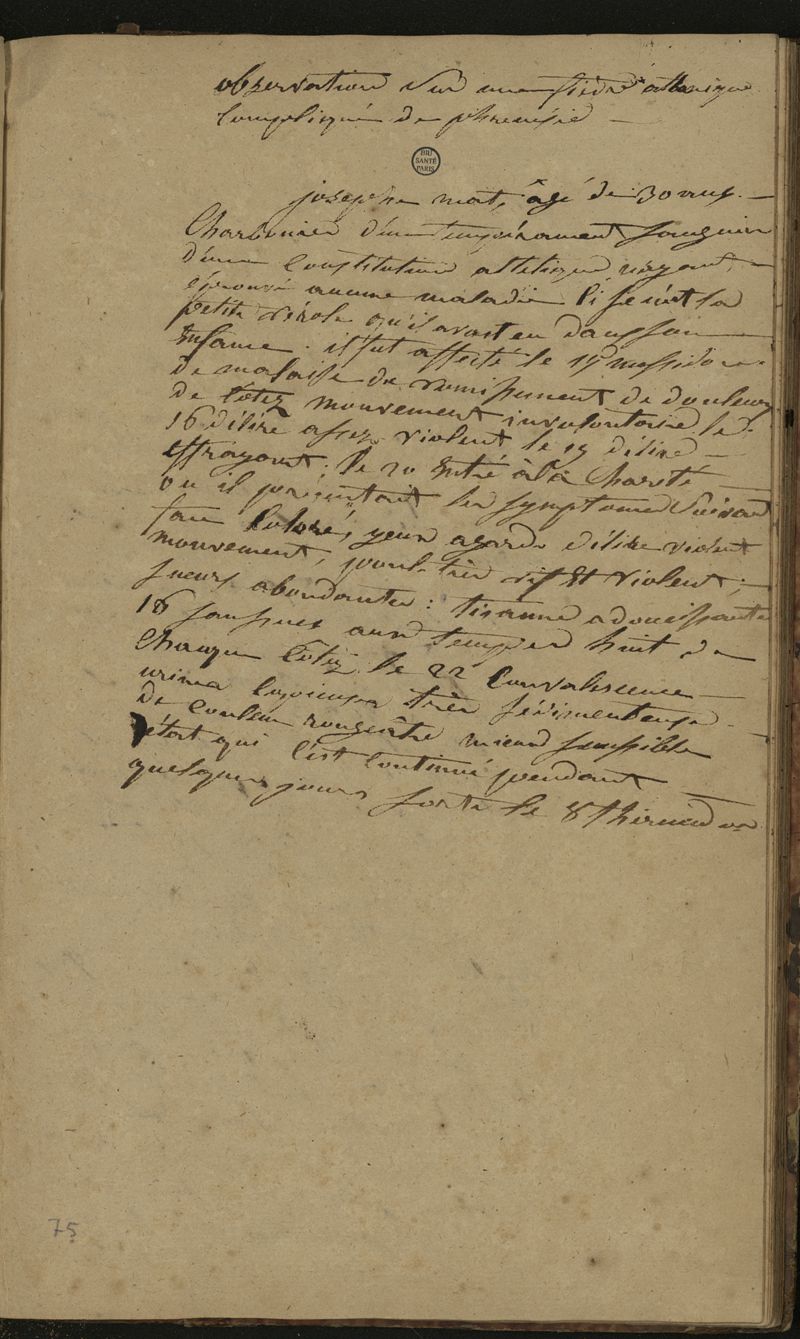 observation sur une fievre attaxique
compliqué de phrenésie
BIU
SANTÉ
PARIS
joseph mat, âgé de 30 ans
Charbonier d'un tempérament sanguin
d'une constitution atletique n'ayant
éprouvé aucune maladie si ce n'est la
petite vérole qu'il avait eu dans son
enfance. il fut affecté le 15 messidor
de malaise de vomissement de douleur
de cotez mouvement involontaire le
16 délire assez violent le 19 délire
effrayant. le 20 entré à la Charité
ou il présentait les symptomes suivant
face coloré, yeux agards délire violent
mouvement, pouls très vif et violent;
sueurs abondantes: tisanne adoucissante
16 sansues aux tempes huit de
chaque cotez le 22 convalescence
urines copieuses très sédimenteuse
de couleur rougeâtre mieux sensible
état qui c'est continué pendant
quelques jours sorti le 8 thermidor
75